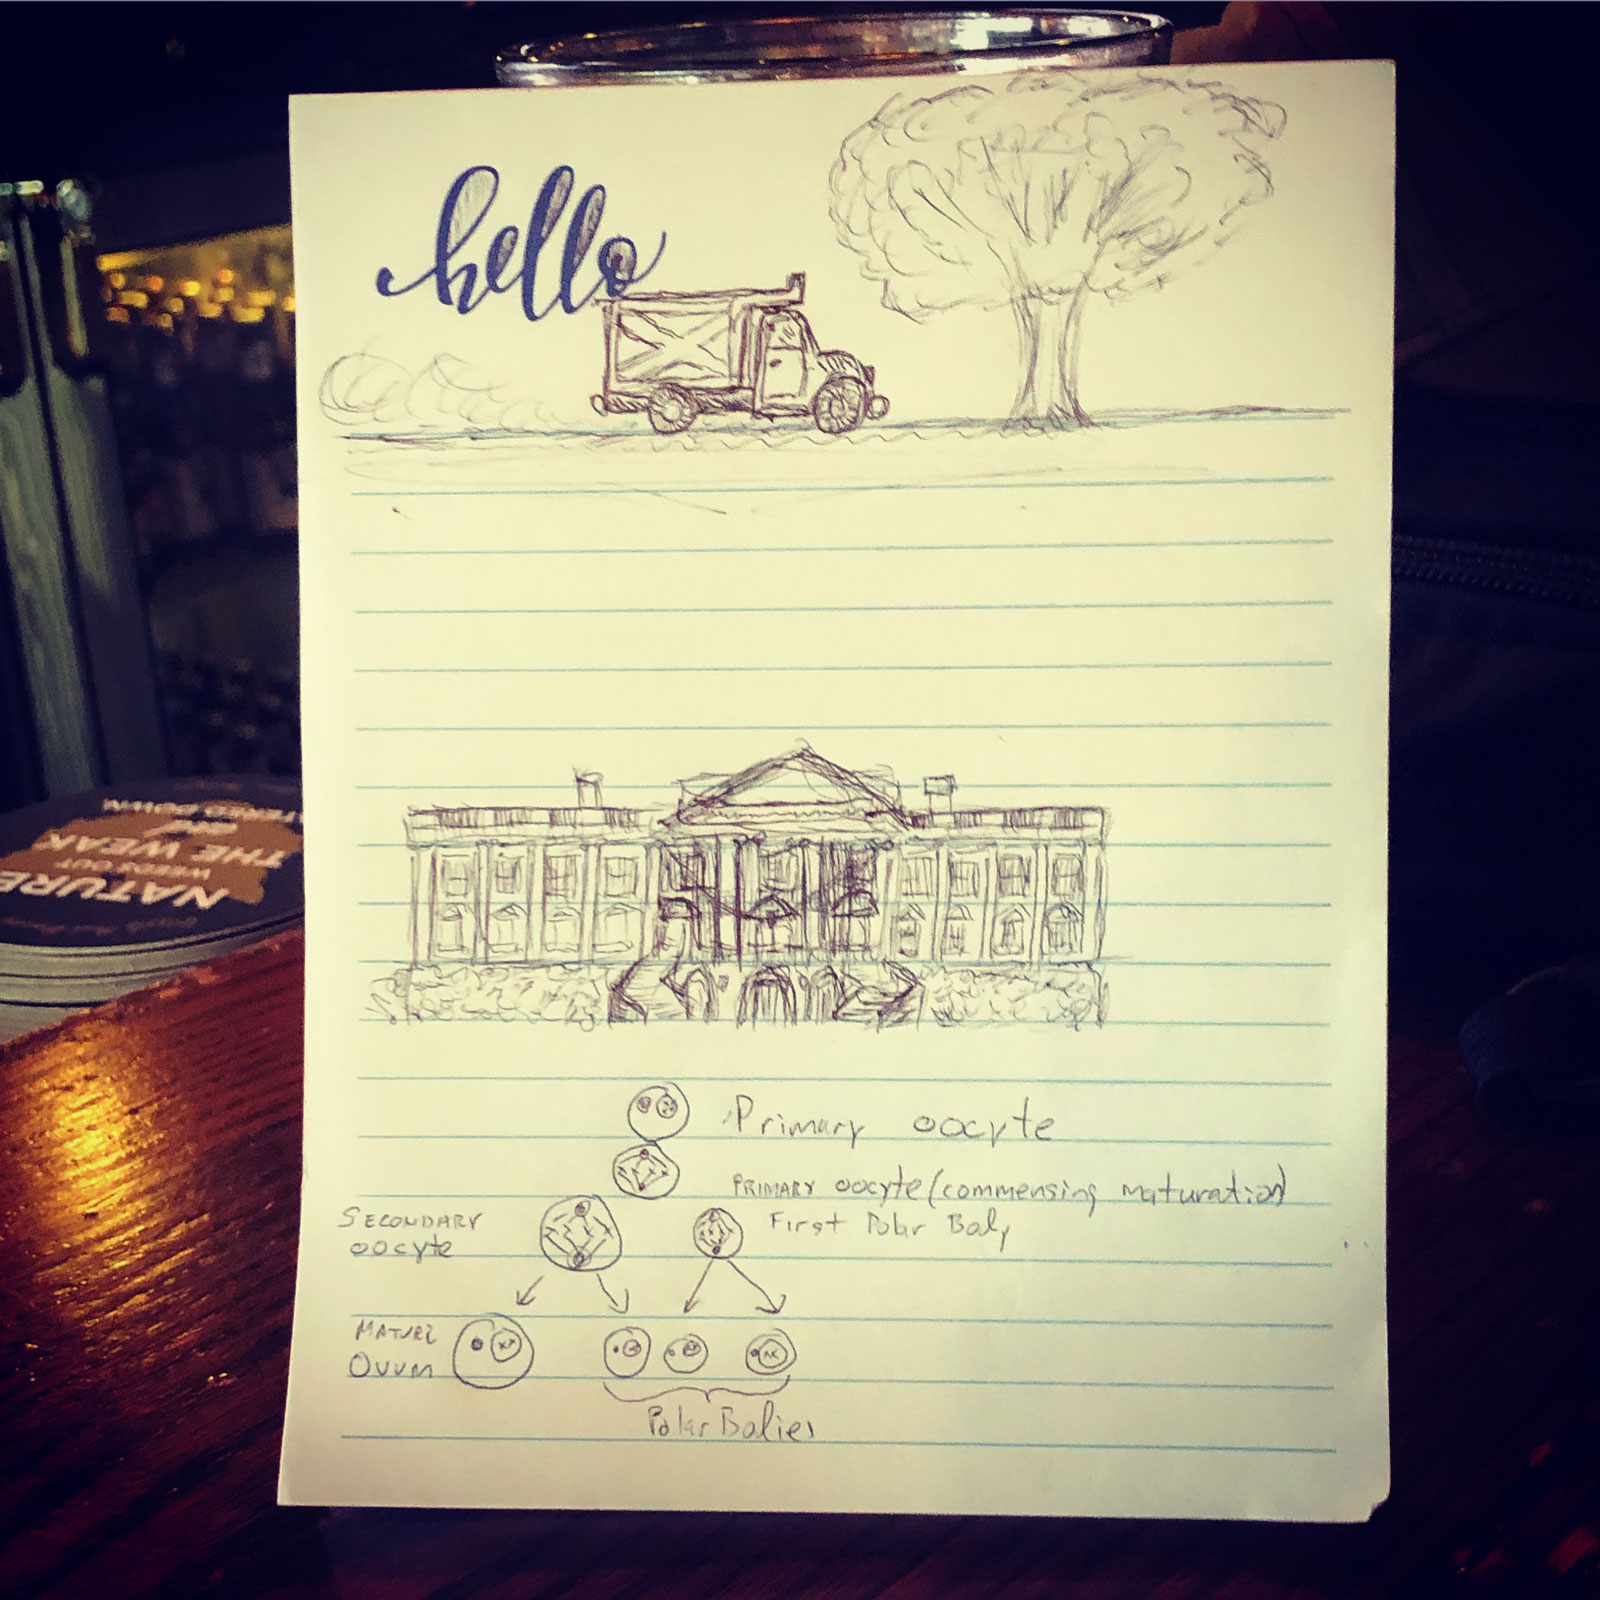 hello
Primary oocyte
PRIMARY oocyte (commensing maturation)
SECONDARY
oocyte
First Polar Body
MATURE
OVUM
Polar Bodies
NATURE
WEEDS OUT
THE WEAK